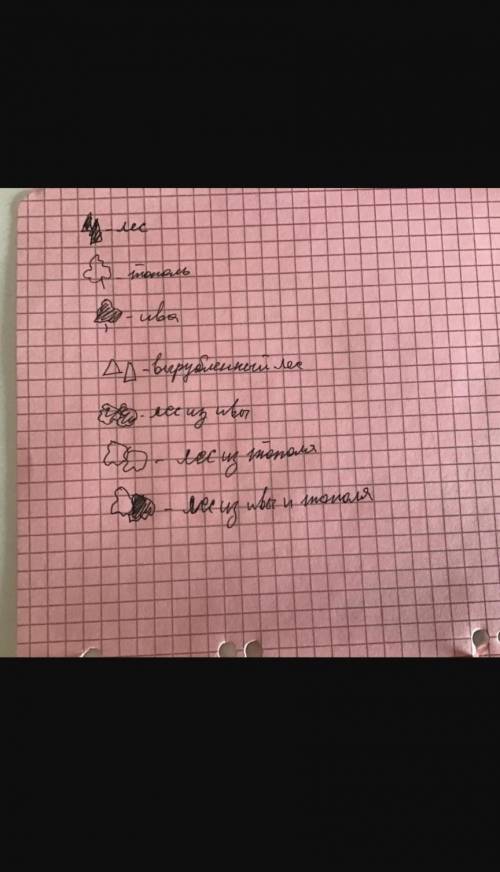 - лес
- тополь
- ива
- вырубленный лес
- лес из ивы
- лес из тополя
- лес из ивы и тополя